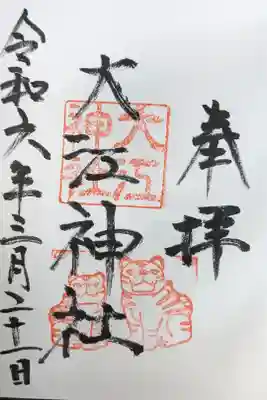 奉拝
大江神社
大江
神社
令和六年三月二十一日